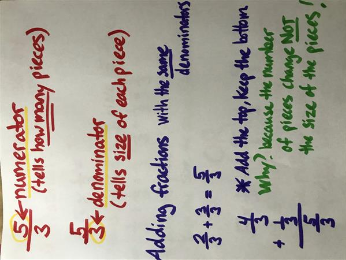 5/3 ← numerator
(tells how many pieces)
5/3 ← denominator
(tells size of each piece)
Adding fractions with the same
denominators
2/3 + 3/3 = 5/3
4/3
+ 1/3
5/3
* Add the top, keep the bottom
Why? because the number
of pieces change NOT
the size of the pieces!